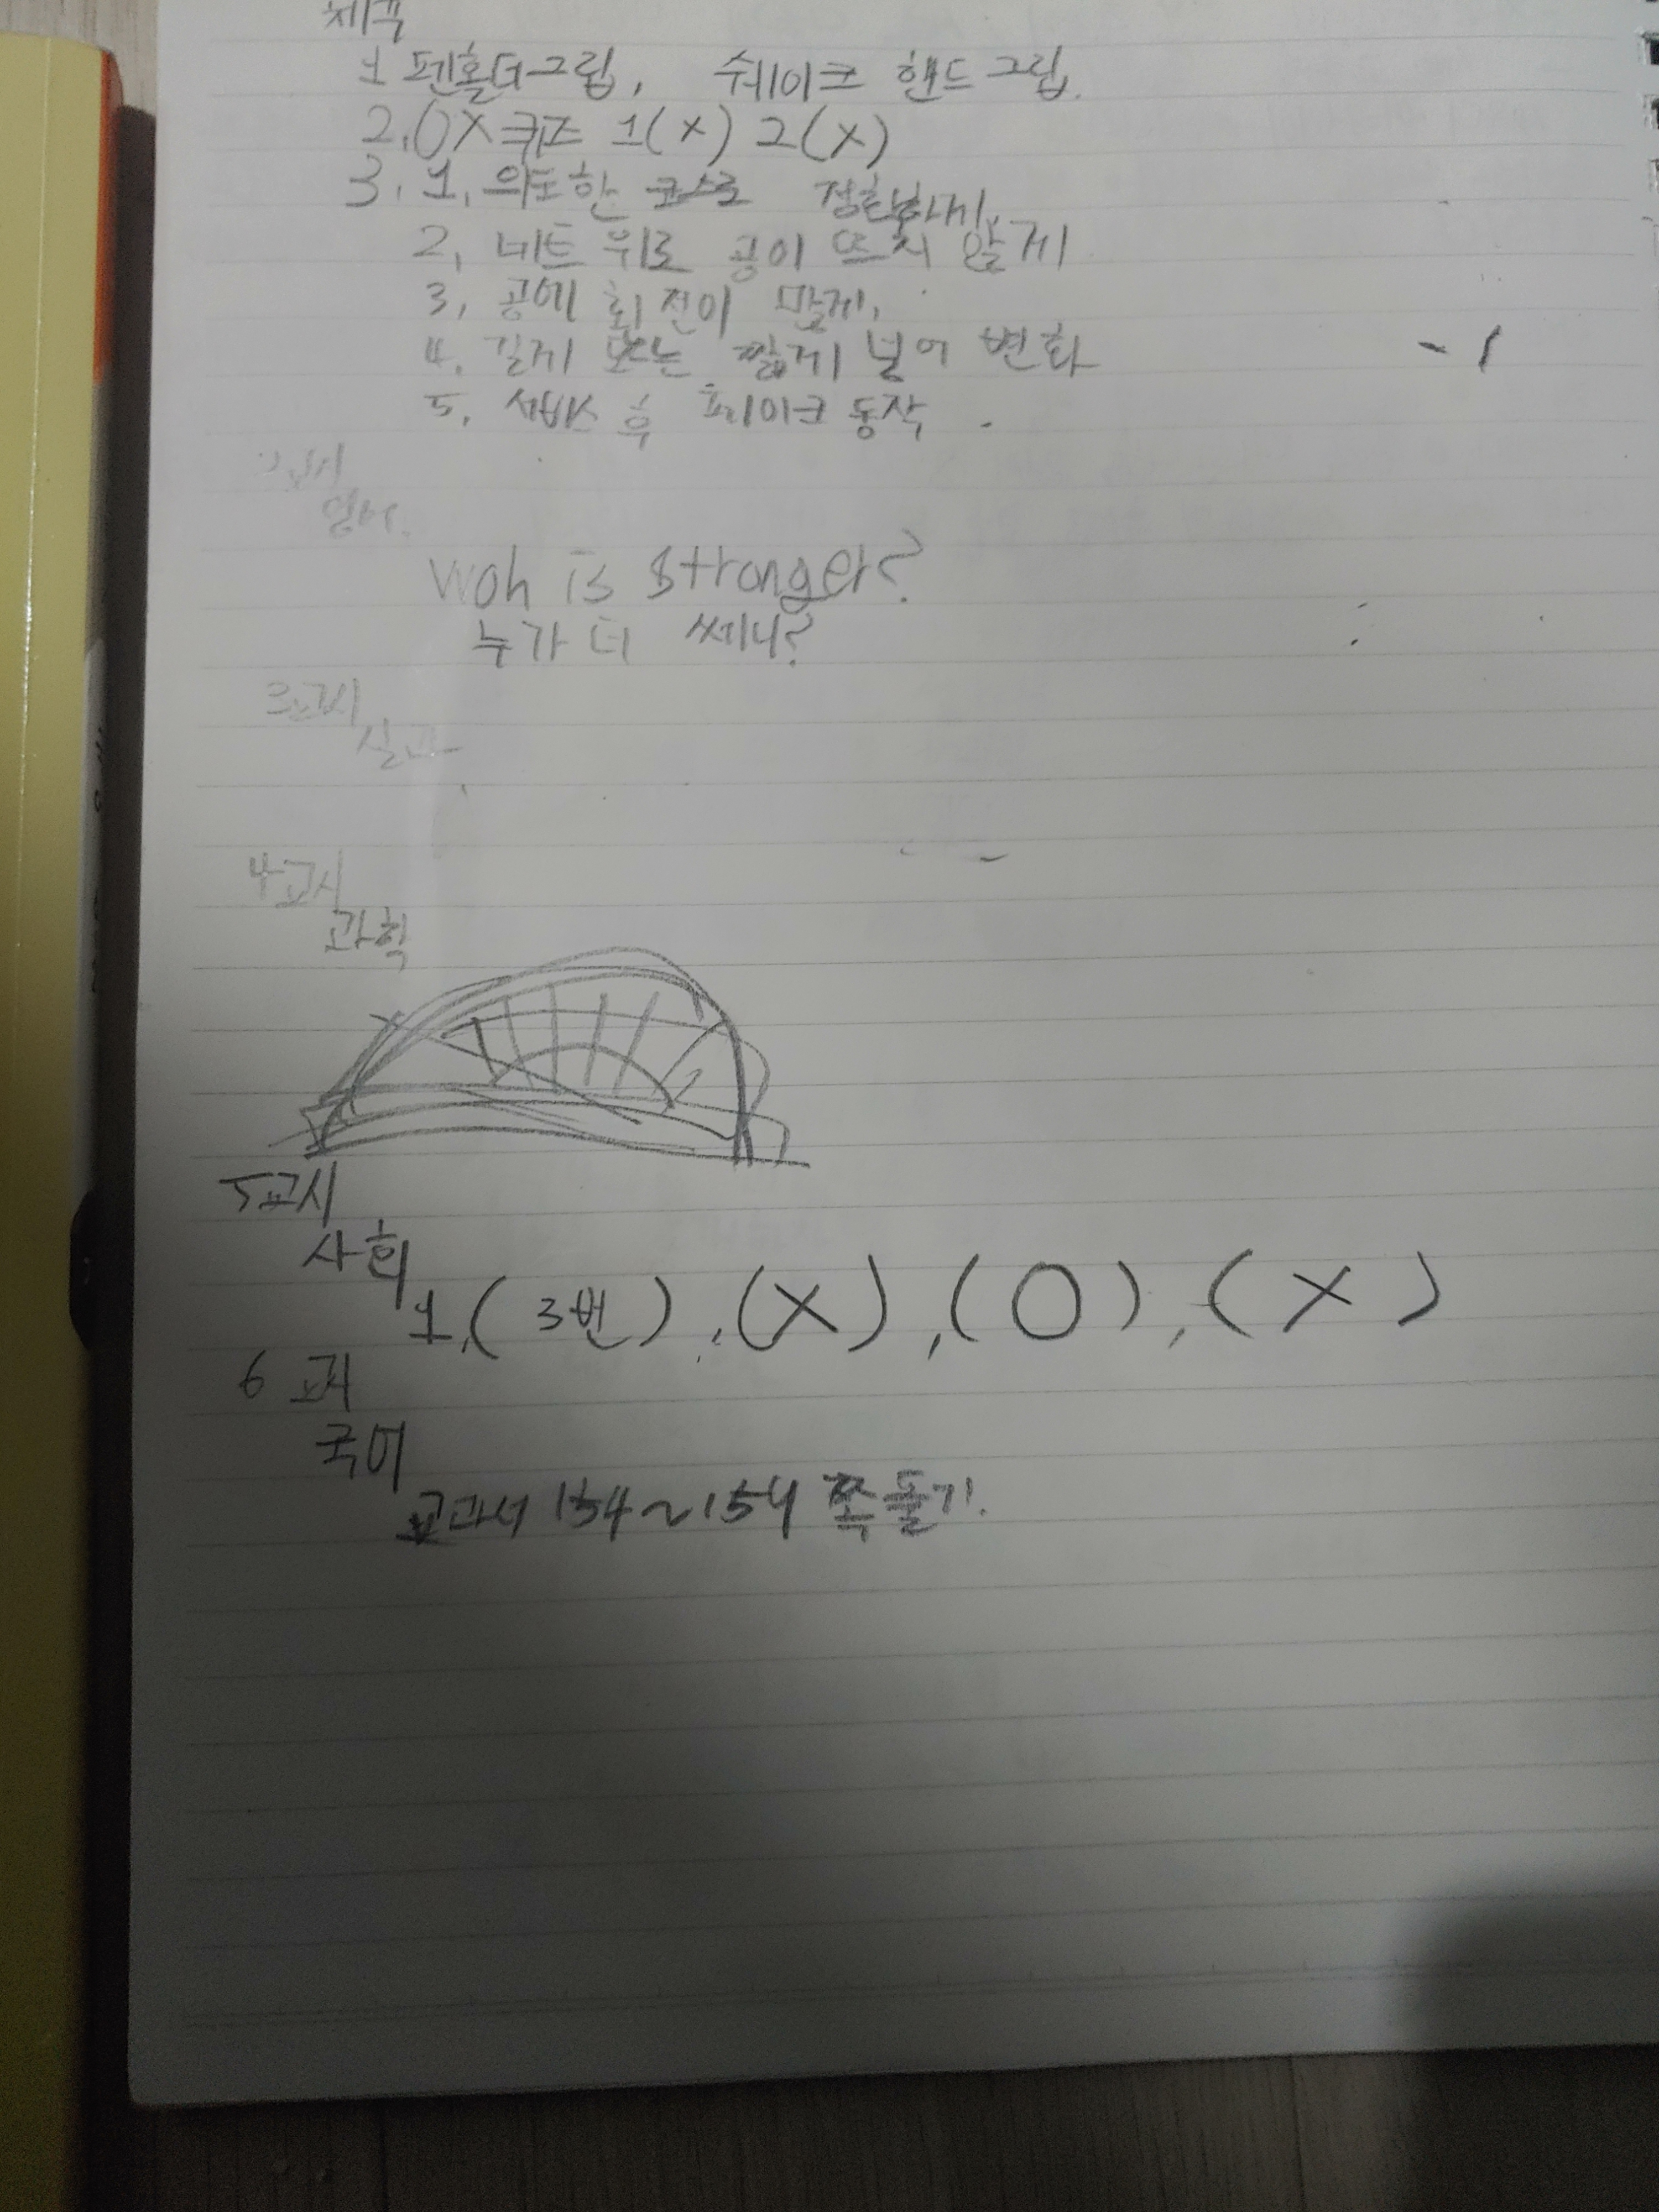 체육
1 펜홀더그립, 쉐이크 핸드그립.
2. OX퀴즈 1(X) 2(X)
3. 1. 의도한 코스로 정확하게.
2, 네트 위로 공이 뜨지 않게
3, 공에 회전이 많게,
4. 길게 또는 짧게 넣어 변화
5, 서비스 후 페이크 동작.
영어.
Woh is stronger?
누가 더 쎄니?
3교시
실과
4교시
과학
5교시
사회
1,(3번),(X),(O),(X)
6교시
국어
교과서 154~154 쪽 풀기.